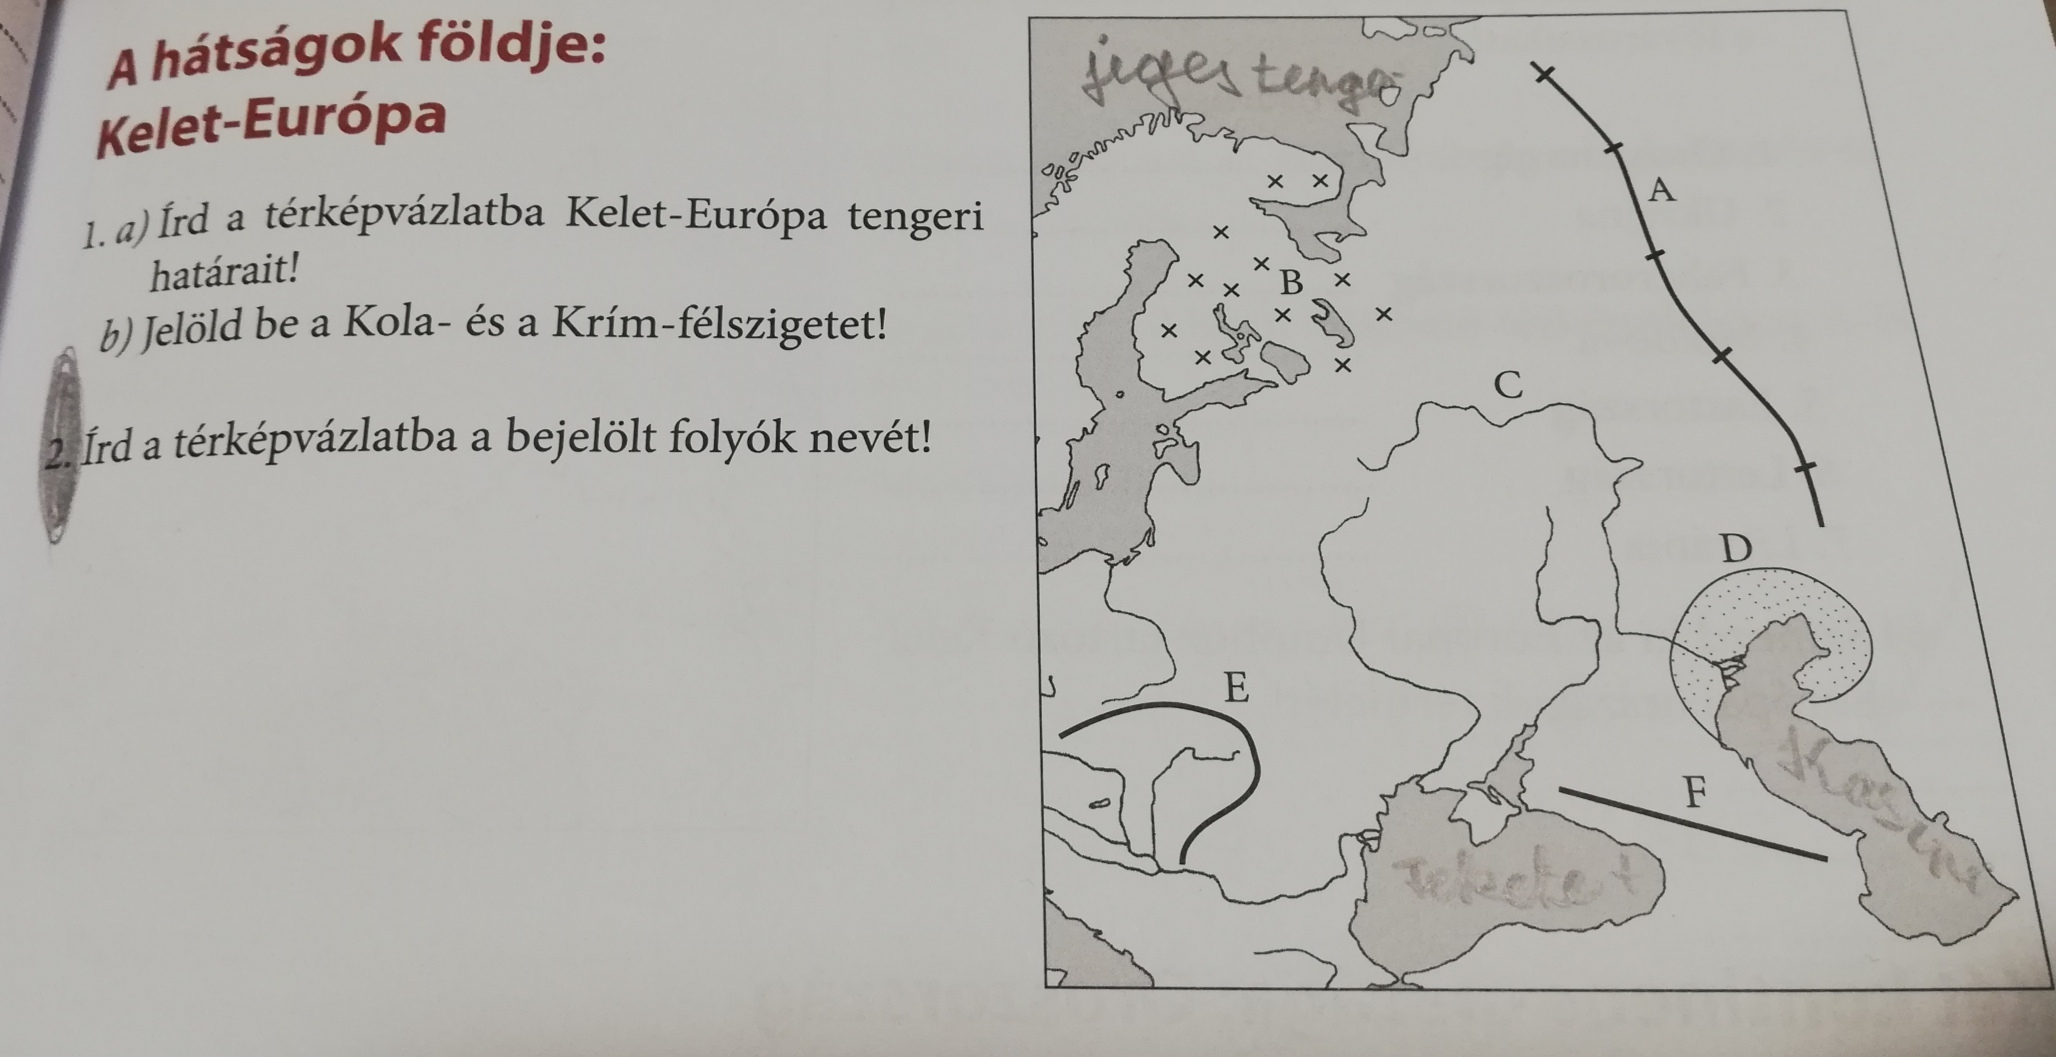 A hátságok földje:
Kelet-Európa
1. a) Írd a térképvázlatba Kelet-Európa tengeri
határait!
b) Jelöld be a Kola- és a Krím-félszigetet!
2. Írd a térképvázlatba a bejelölt folyók nevét!
jeges tenger
A
B
C
D
E
F
Kaszpi
Fekete t